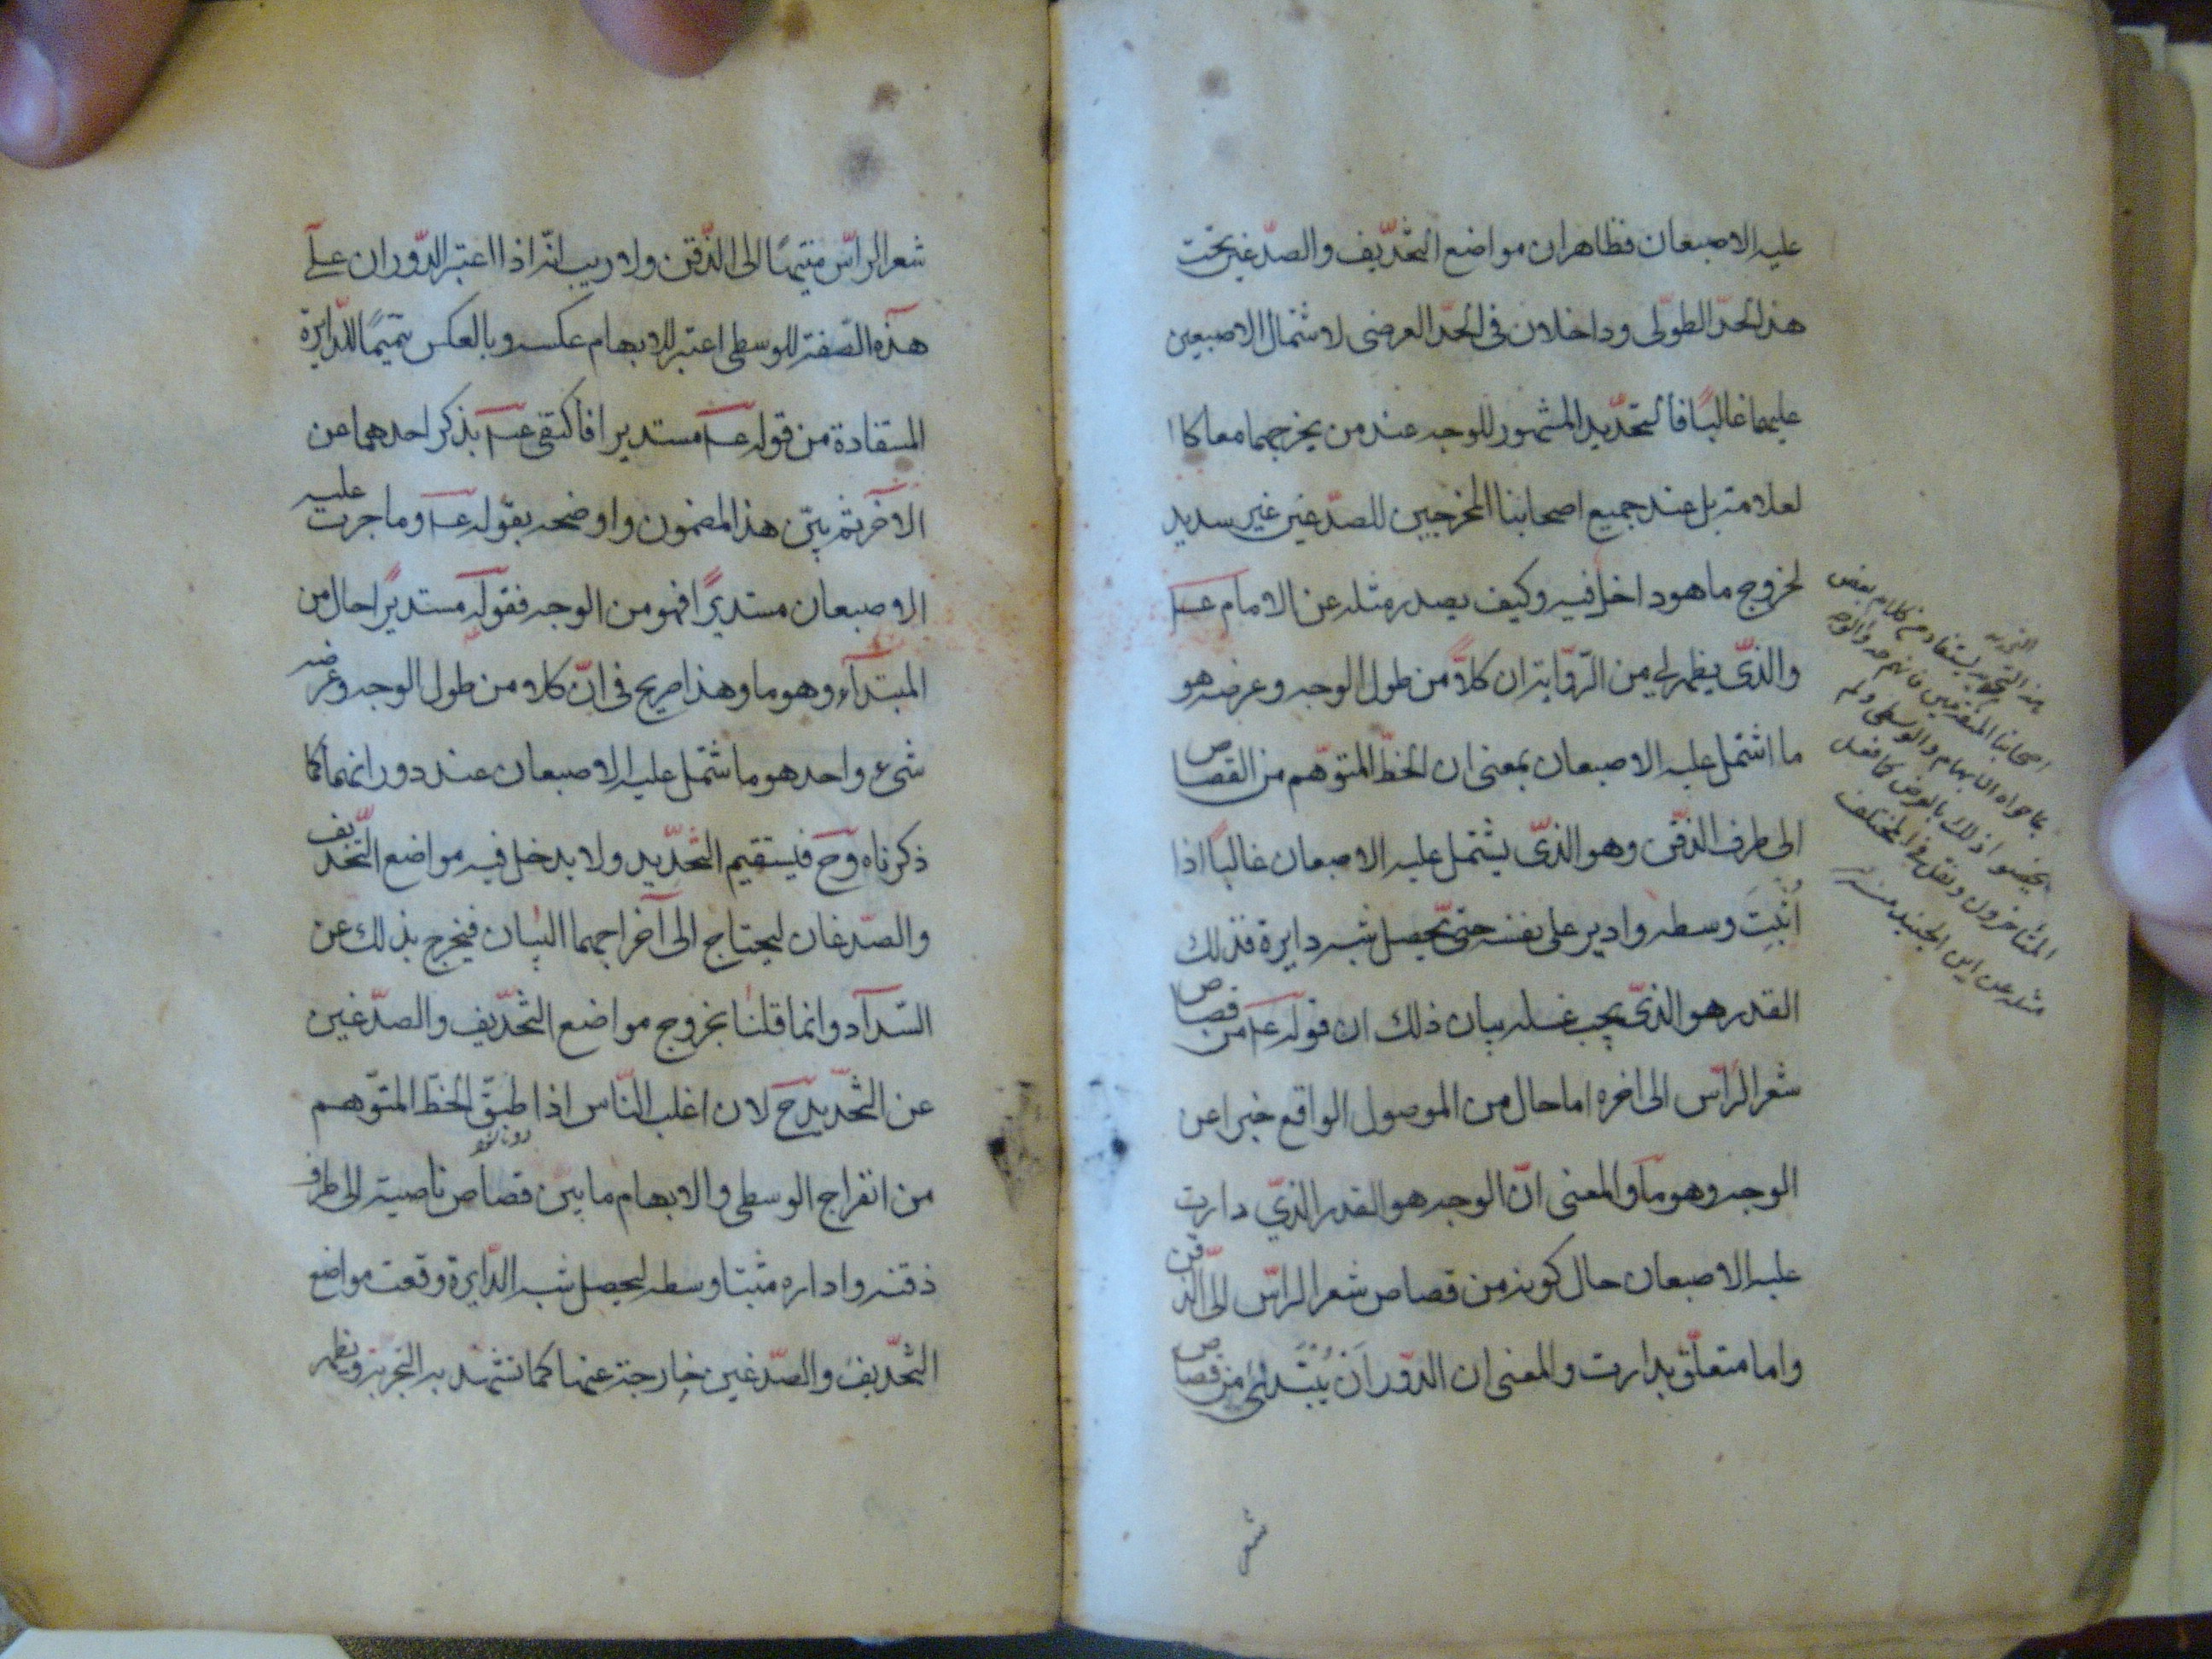 عليه الاصبعان فظاهر ان مواضع التحذيف والصدغين تحت
هذا الحد الطولى وداخلان فى الحد العرضى لاشتمال الاصبعين
عليهما غالبًا فالتحديد المشهور للوجه عند من يخرجهما معا كا
لعلامة بل عند جميع اصحابنا المخرجين للصدغين غير سديد
لخروج ما هو داخل فيه وكيف يصدر مثله عن الامام عـ
والذى يظهر لى من الرواية ان كلاًّ من طول الوجه وعرضه هو
ما اشتمل عليه الاصبعان بمعنى ان الخط المتوهم من القصاص
الى طرف الذقن وهو الذى يشتمل عليه الاصبعان غالبًا اذا
اُثْبِتَ وسطه وادير على نفسه حتى يحصل شبه دايرة فذلك
القدر هو الذى يجب غسله بيان ذلك ان قوله عـ من قصاص
شعر الراس الى اخره اما حال من الموصول الواقع خبرا عن
الوجه وهو ما والمعنى انّ الوجه هو القدر الذى دارت
عليه الاصبعان حال كونه من قصاص شعر الراس الى الذقن
واما متعلق بدارت والمعنى ان الدوران يُبْتَدئ من قصاص
شعر
هذا التحديد يستفاد من كلام بعض
اصحابنا المتقدمين فانهم حدوا الوجه
بما حواه الابهام والوسطى ولم
يخصوا ذلك بالعرض كما فعل
المتاخرون ونقل فى المختلف
مثله عن ابن الجنيد منه
شعر الراس منتهيًا الى الذقن ولا ريب انّه اذا اعتبر الدوران على
هذه الصفة للوسطى اعتبر للابهام عكسه وبالعكس تتميمًا للدايرة
المستفادة من قوله عـ مستديرا فاكتفى عـ بذكر احدهما عن
الاخر ثم بيّن هذا المضمون واوضحه بقوله عـ وما جرت عليه
الاصبعان مستديرًا فهو من الوجه فقوله مستديرًا حال من
المبتدأ وهو ما وهذا صريح فى انّ كلا من طول الوجه وعرضه
شىء واحد هو ما اشتمل عليه الاصبعان عند دورانهما كما
ذكرناه وح فيستقيم التحديد ولا يدخل فيه مواضع التحذيف
والصدغان ليحتاج الى اخراجهما البيان فيخرج بذلك عن
السداد وانما قلنا بخروج مواضع التحذيف والصدغين
عن التحديد ح لان اغلب الناس اذا طبق الخط المتوهم
من انفراج الوسطى والابهام ما بين قصاص ناصيته الى طرف
ذقنه واداره مثبتا وسطه ليحصل شبه الدايرة وقعت مواضع
التحذيف والصدغين خارجة عنها كما تشهد به التجربة ويظهر